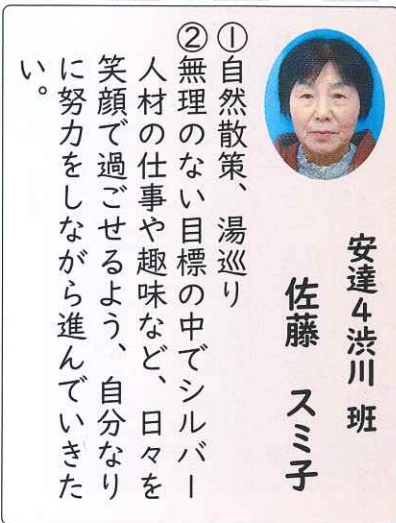 安達4渋川 班
佐藤 スミ子
①自然散策、湯巡り
②無理のない目標の中でシルバー
人材の仕事や趣味など、日々を
笑顔で過ごせるよう、自分なり
に努力をしながら進んでいきた
い。